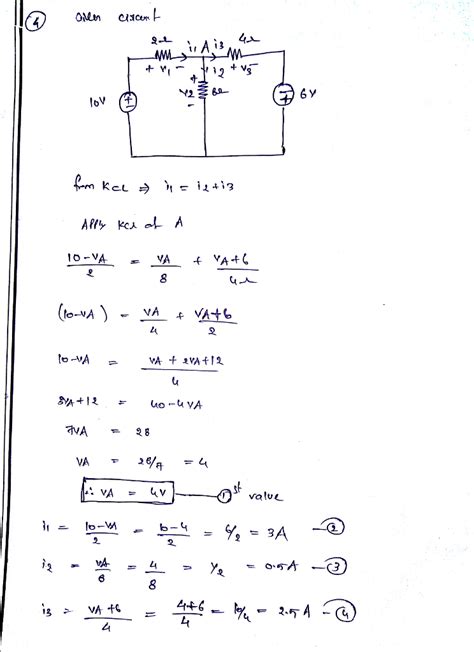 (4) Given circuit
2Ω i1 A i3 4Ω
+ V1 - i2 + V3 -
10V + V2 - 8Ω 6V
from KCL ⇒ i1 = i2+i3
Apply KCL at A
10-VA/2 = VA/8 + VA+6/4Ω
(10-VA) = VA/4 + VA+6/2
10-VA = VA + 2VA+12/4
3VA+12 = 40-4VA
7VA = 28
VA = 28/7 = 4
∴ VA = 4V —(1)st value
i1 = 10-VA/2 = 10-4/2 = 6/2 = 3A —(2)
i2 = VA/8 = 4/8 = 1/2 = 0.5A —(3)
i3 = VA+6/4 = 4+6/4 = 10/4 = 2.5A —(4)